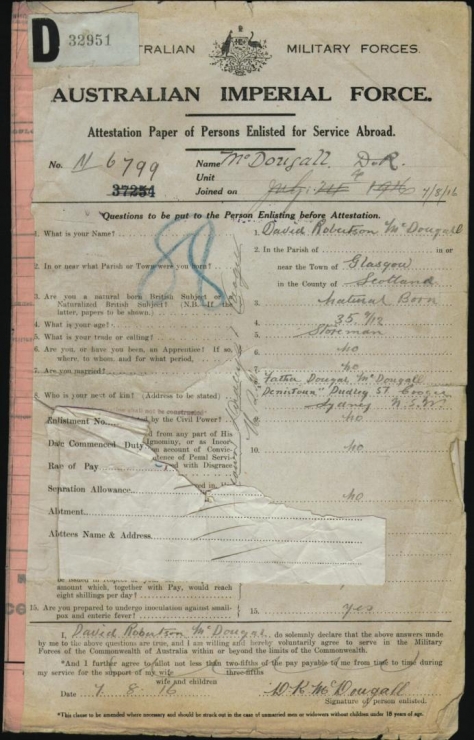 D 32951
TRALIAN MILITARY FORCES.
AUSTRALIAN IMPERIAL FORCE.
Attestation Paper of Persons Enlisted for Service Abroad.
No. N 6799 Name McDougall. D.R.
Unit
37251 Joined on 7/8/16
Questions to be put to the Person Enlisting before Attestation.
1. What is your Name? 1. David Robertson McDougall
2. In or near what Parish or Town were you born? 2. In the Parish of in or
near the Town of Glasgow
in the County of Scotland
3. Are you a natural born British Subject or a Naturalized British Subject? (N.B. If the latter, papers to be shown.) 3. Natural Born
4. What is your age? 4. 35
5. What is your trade or calling? 5. Storeman
6. Are you, or have you been, an Apprentice? If so, where, to whom, and for what period, 6. No
7. Are you married? 7. No
8. Who is your next of kin? (Address to be stated) Father Dougal McDougall
Dudley St Coogee
Sydney N.S.W.
88
by the Civil Power? No
from any part of His
Ignominy, or as Incor-
on account of Convic-
dence of Penal Servi-
ed with Disgrace
10. No
No
Enlistment No.
Date Commenced Duty
Rate of Pay
Separation Allowance
Allotment
Allottees Name & Address
amount which, together with Pay, would reach
eight shillings per day?
15. Are you prepared to undergo inoculation against small-
pox and enteric fever? 15. Yes
I, David Robertson McDougall do solemnly declare that the above answers made
by me to the above questions are true, and I am willing and hereby voluntarily agree to serve in the Military
Forces of the Commonwealth of Australia within or beyond the limits of the Commonwealth.
*And I further agree to allot not less than two-fifths of the pay payable to me from time to time during
three-fifths
my service for the support of my wife
wife and children
Date 7 8 16 D.R. McDougall
Signature of person enlisted.
*This clause to be amended where necessary and should be struck out in the case of unmarried men or widowers without children under 18 years of age.